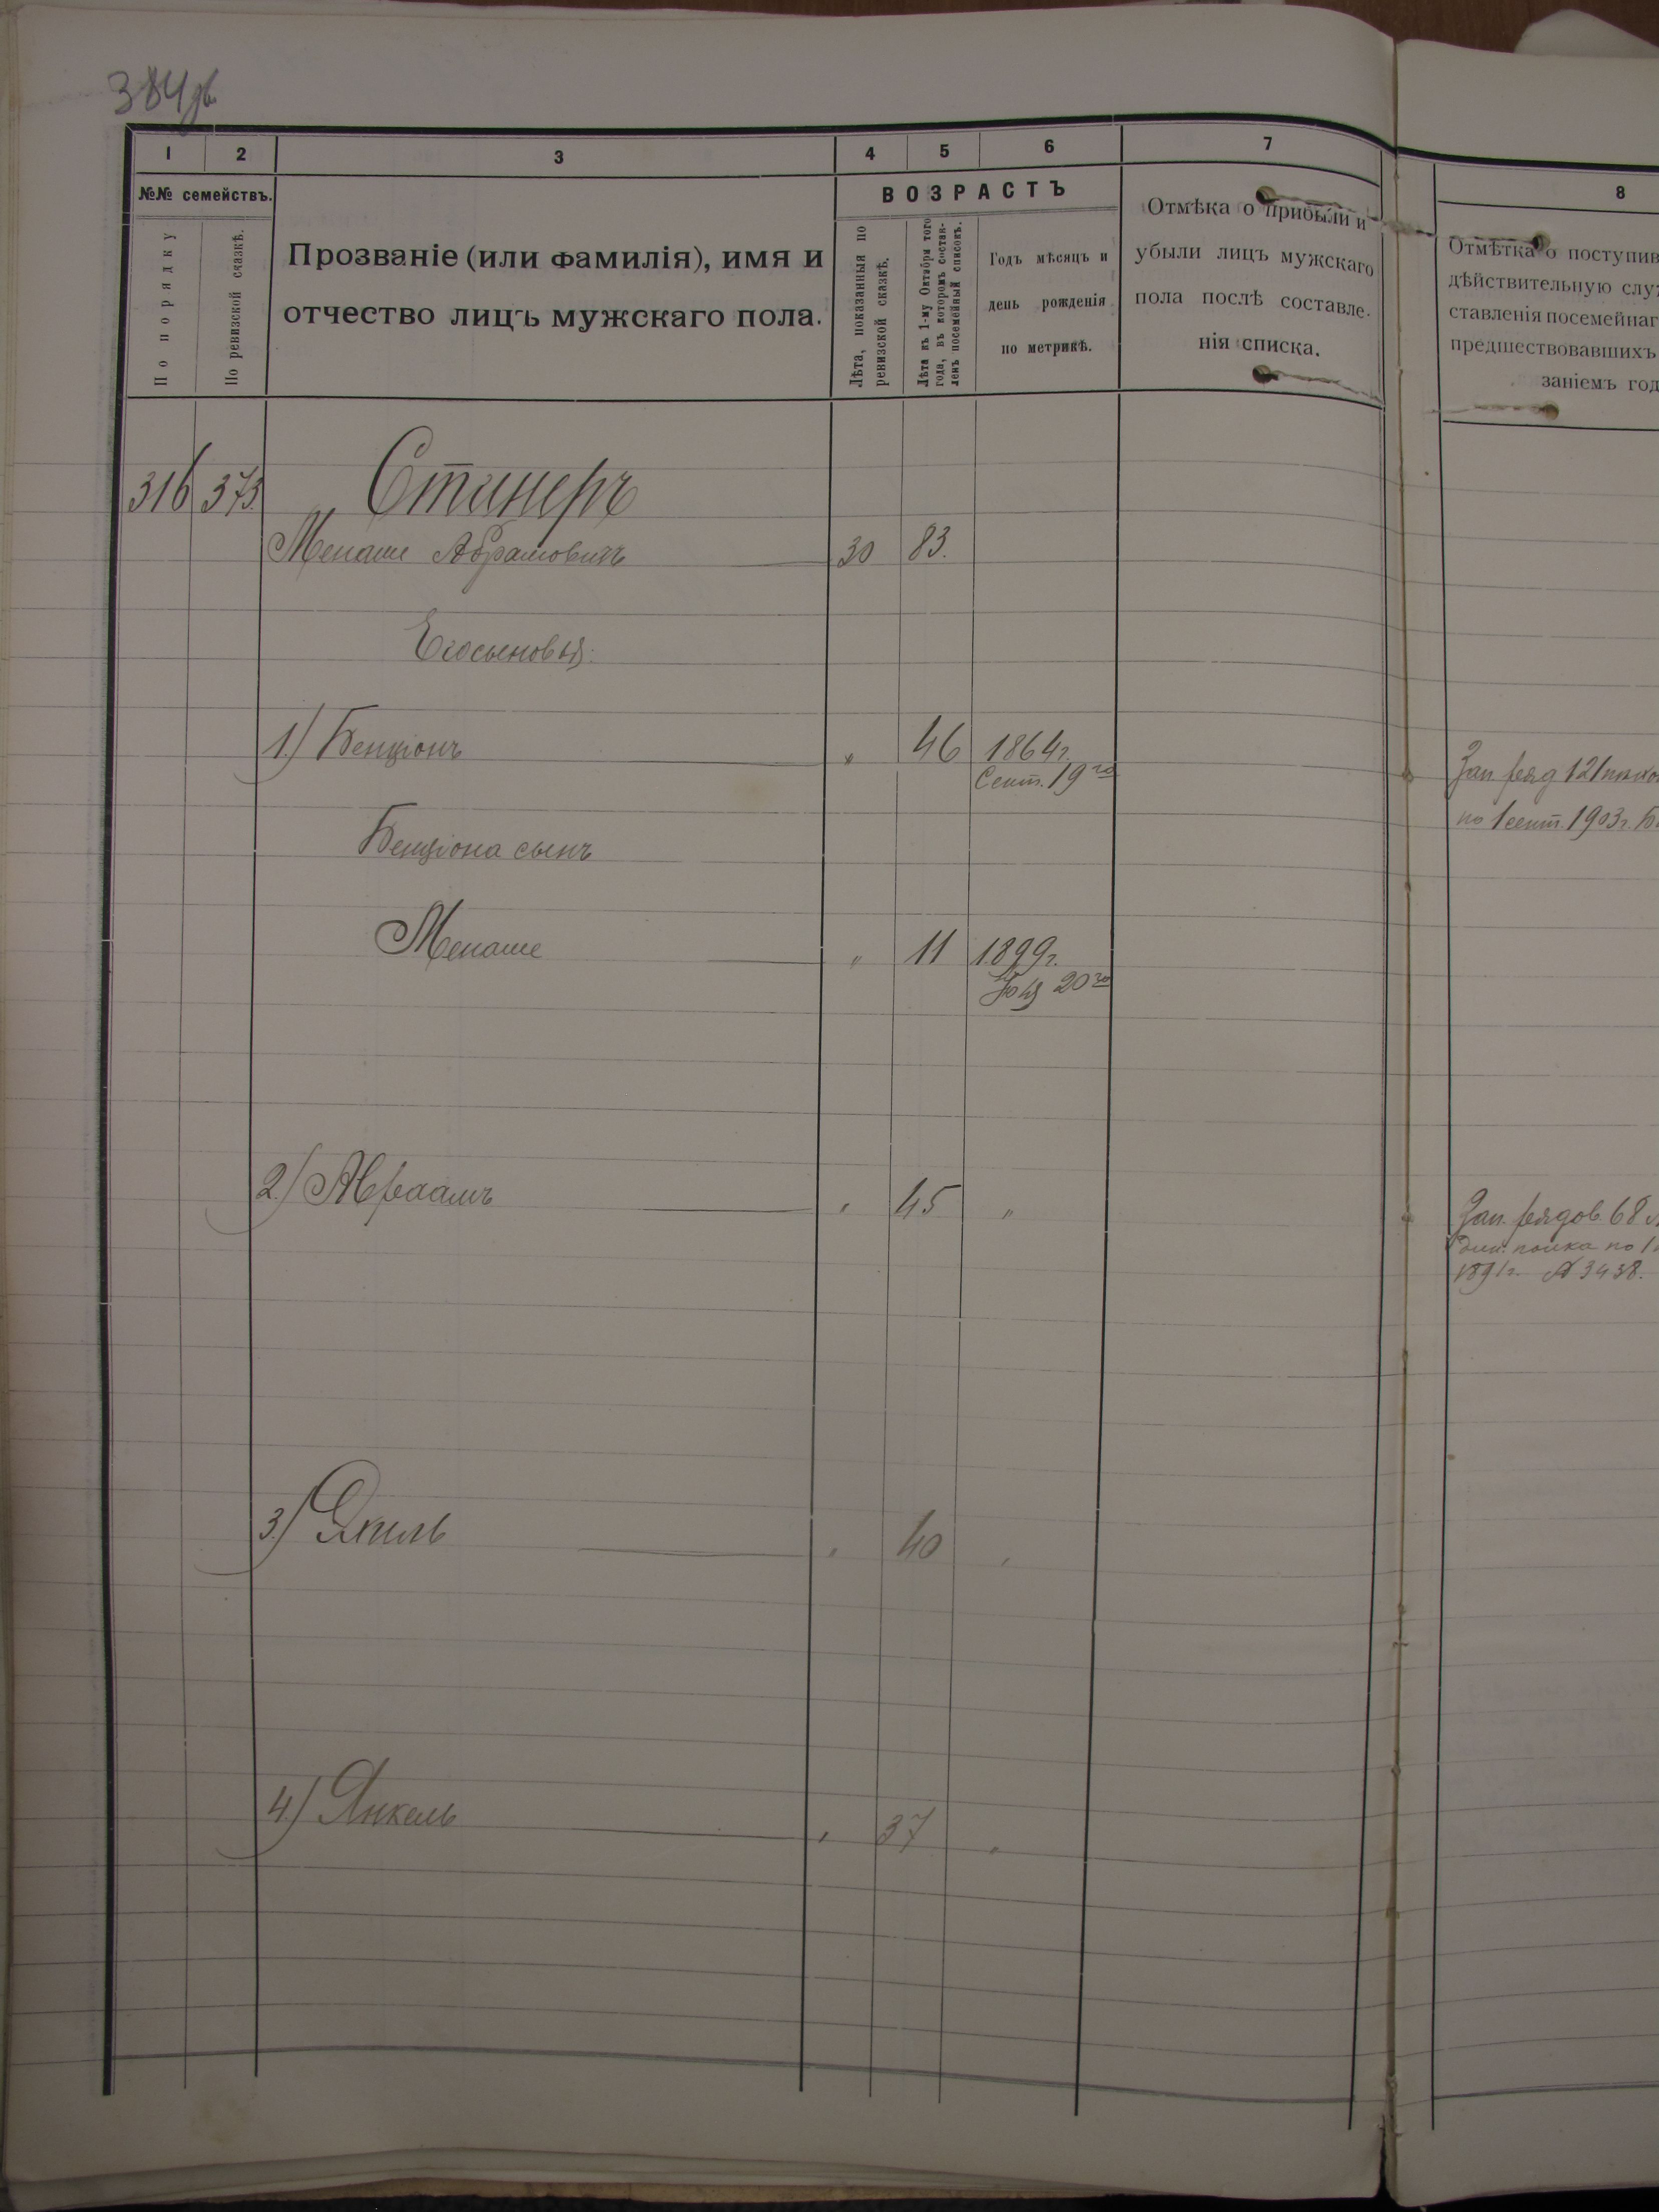 384 об
1
2
3
4
5
6
7
8
№№ семействъ.
По порядку
По ревизской сказкѣ.
Прозваніе (или фамилія), имя и
отчество лицъ мужскаго пола.
ВОЗРАСТЪ
Лѣта, показанныя по
ревизской сказкѣ.
Лѣта къ 1-му Октября того
года, въ которомъ состав-
ленъ посемейный списокъ.
Годъ мѣсяцъ и
день рожденія
по метрикѣ.
Отмѣка о прибыли и
убыли лицъ мужскаго
пола послѣ составле-
нія списка.
Отмѣтка о поступив
дѣйствительную слу
ставленія посемейнаг
предшествовавшихъ
заніемъ год
316 373. Станеръ
Менаше Абрамовичъ 30 83.
Его сыновья:
1.) Бенціонъ " 46 1864 г.
Сент. 19го
Зап. ряд 121 пѣхо
по 1 сент. 1903 г. В
Бенціона сынъ
Менаше " 11 1899 г.
Юня 20го
2.) Авраамъ " 45 "
Зап. рядов. 68
полка по 1
1891 г. № 3438.
3.) " 40 "
4.) Янкель " 37 "